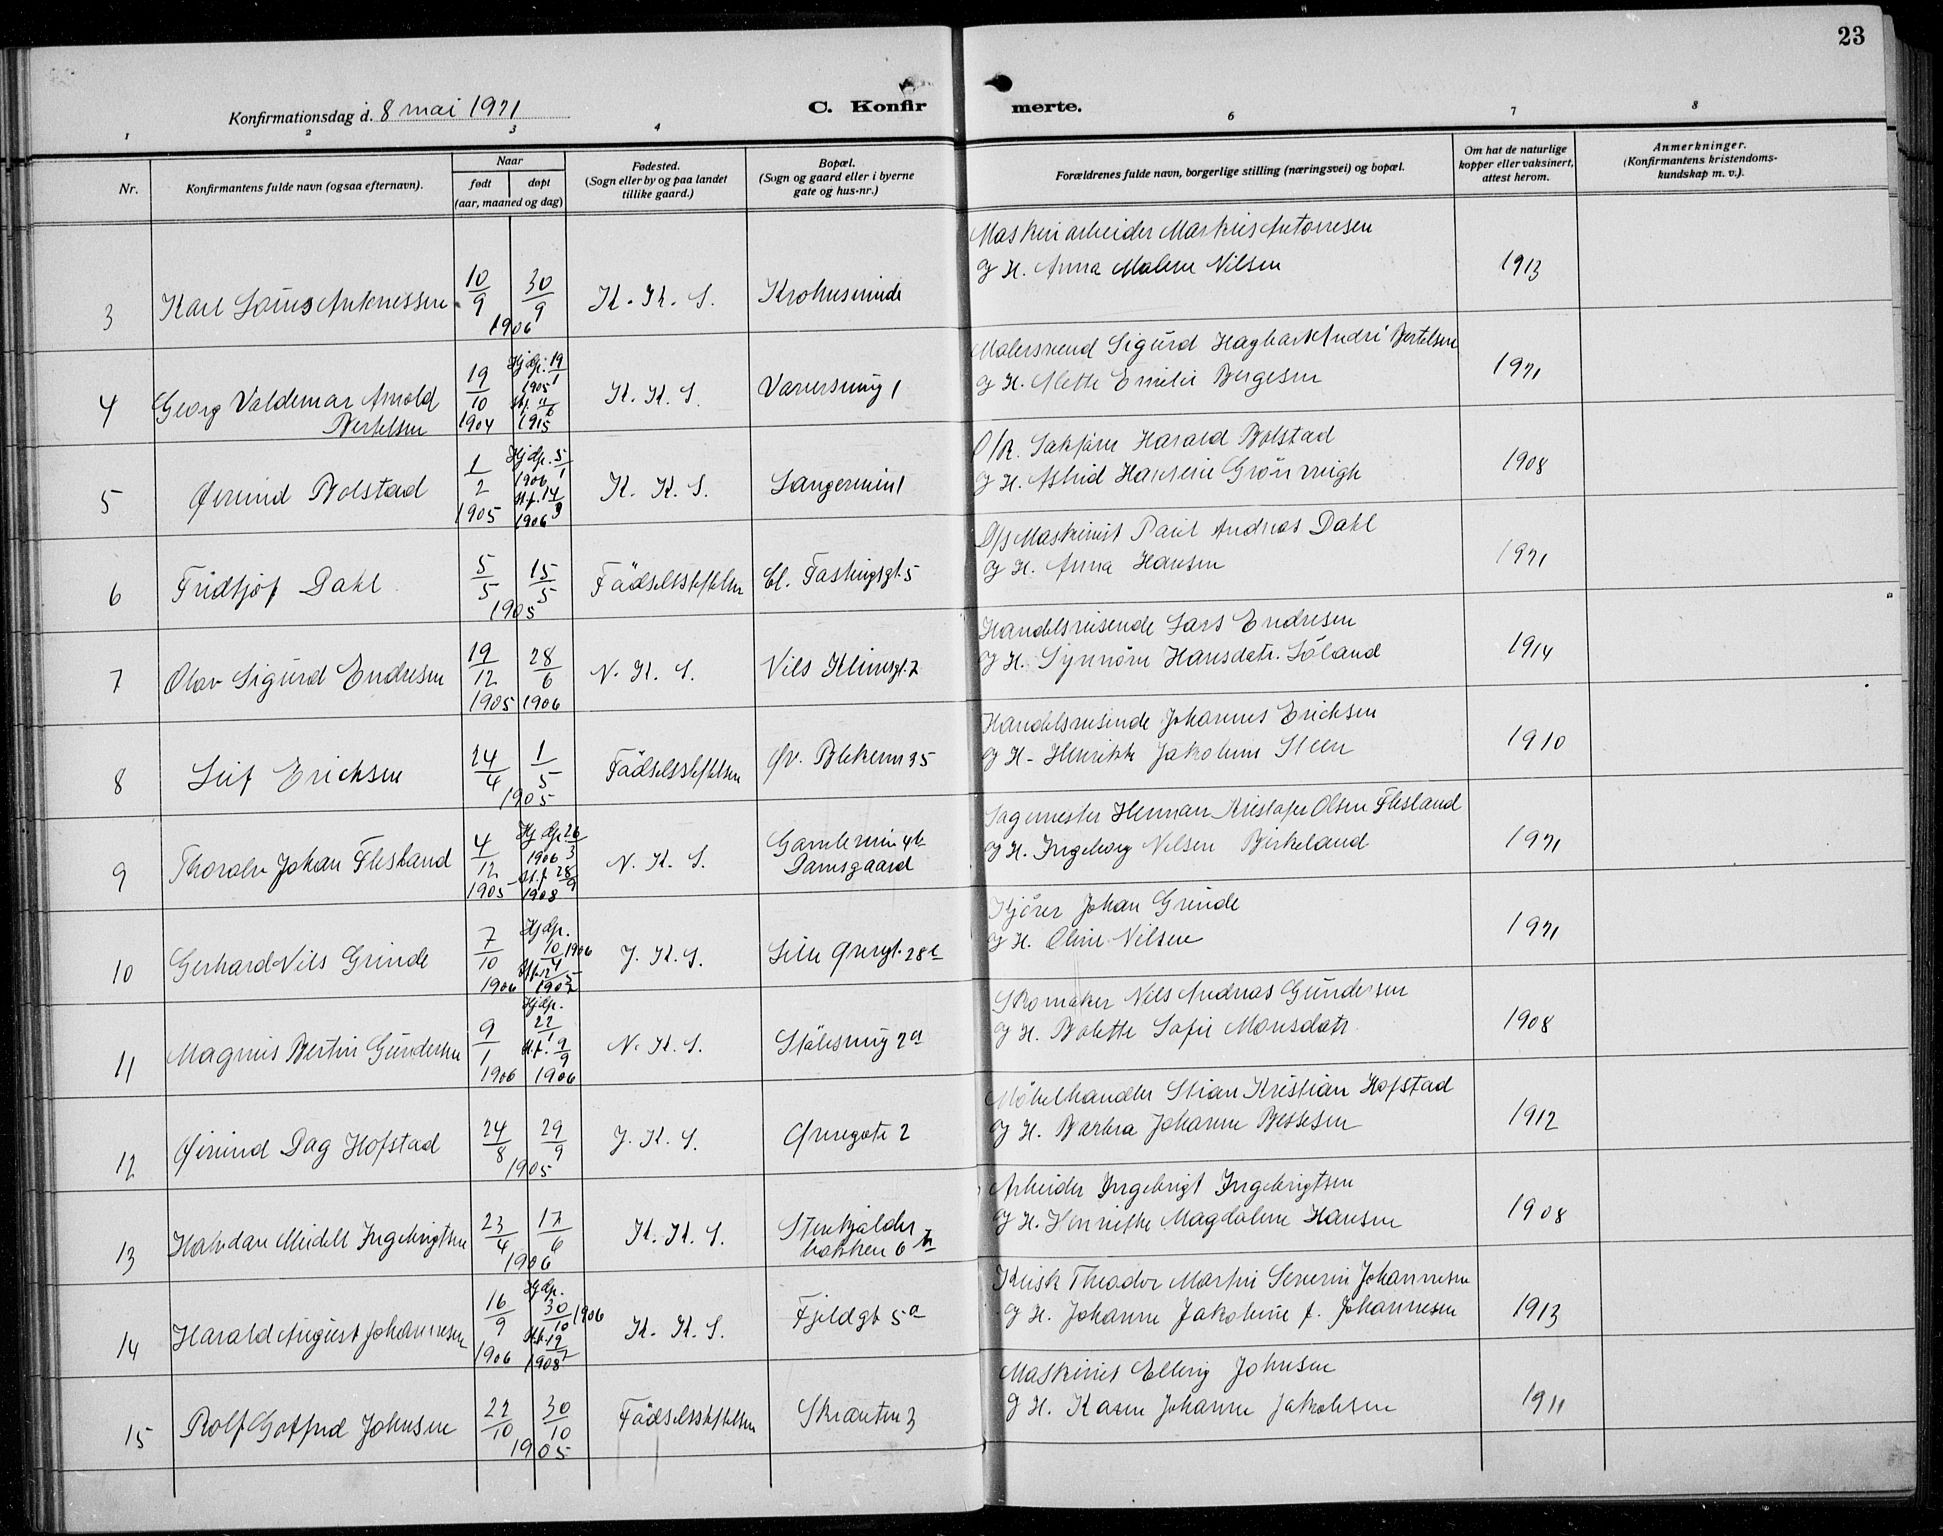 23
Konfirmationsdag d. 8 mai 1921
C. Konfir merte.
1 2 3 4 6 7 8
Nr.
Konfirmantens fulde navn (ogsaa efternavn).
Naar
født døpt
(aar, maaned og dag)
Fødested.
(Sogn eller by og paa landet
tillike gaard.)
Bopæl.
(Sogn og gaard eller i byerne
gate og hus-nr.)
Forældrenes fulde navn, borgerlige stilling (næringsvei) og bopæl.
Om hat de naturlige
kopper eller vaksinert,
attest herom.
Anmerkninger.
(Konfirmantens kristendoms-
kundskap m. v.).
Maskinarbeider Markus Antonesen
3 Karl Louis Antonessen 10/9 30/9 1906 K. K. S. Krohusminde
og H. Anna Malene Nilsen 1913
Malersvend Sigurd Hagbart André Bertelsen
4 Georg Valdemar Arnold
Bertelsen 19/10 1904 Hjdp. 19/1 1905 St.f. 11/6 1915 K. K. S. 1
og H. Alette Emilie Bergesen 1921
O/R. Sakfører Harald Bolstad
5 Øivind Bolstad 1/2 1905 Hjdp. 5/1 1906 St.f. 14/3 1906 K. K. S. 1
og H. Astrid Hansine Grönvigh 1908
D/S Maskinist Paul Andreas Dahl
6 Fridtjof Dahl 5/5 15/5 1905 Fädselsstiftelsen Cl. Fastingsgt. 5
og H. Anna Hansen 1921
Handelsreisende Lars Endresen
7 Olav Sigurd Endresen 19/12 1905 28/6 1906 N. K. S. Nils Klimsgt. 2
og H. Synnöve Hansdatr. Söland 1914
Handelsreisende Johannes Erichsen
8 Leif Erichsen 24/4 1/5 1905 Fädselsstiftelsen Øv. Blekevn 35
og H. Henrikke Jakobine Steen 1910
Sagemester Herman Kristofer Olsen Flesland
9 Thoralv Johan Flesland 4/12 1905 Hjdp. 26/3 1906 St.f. 28/9 1908 N. K. S. Gamlevein 4b
Damsgaard
og H. Ingeborg Nilsen Birkeland 1921
Kjörer Johan Grinde
10 Gerhard Nils Grinde 7/10 1906 Hjdp. /10 1906 J. K. S. 28c
og H. Oline Nilsen 1921
Skomaker Nils Andreas Gundersen
11 Magnus Bertin Gundersen 9/1 1906 Hjdp. 22/1 St.f. 9/9 1906 N. K. S. Stölesmug 2a
og H. Bolette Sofie Monsdatr. 1908
Möbelhandler Stian Kristian Hofstad
12 Øivind Dag Hofstad 24/8 29/9 1905 J. K. S. Øvregate 2
og H. Barbra Johanne Bessesen 1912
Arbeider Ingebrigt Ingebrigtsen
13 Halvdan Meidell Ingebrigtsen 23/4 17/6 1906 K. K. S. Stenkjælder
bakken 6 b
og H. Henriette Magdalene Hansen 1908
Kusk Theodor Martin Severin Johannesen
14 Harald August Johannesen 16/9 1906 Hjdp. 30/10 1906 St.f. 19/ 1908 K. K. S. Fjeldgt 5a
og H. Johanne Jakobine f. Johannesen 1913
Maskinist Elling Johnsen
15 Rolf Gotfred Johnsen 22/10 30/10 1905 Fädselsstiftelsen Skranten 3
og H. Karen Johanne Jakobsen 1911